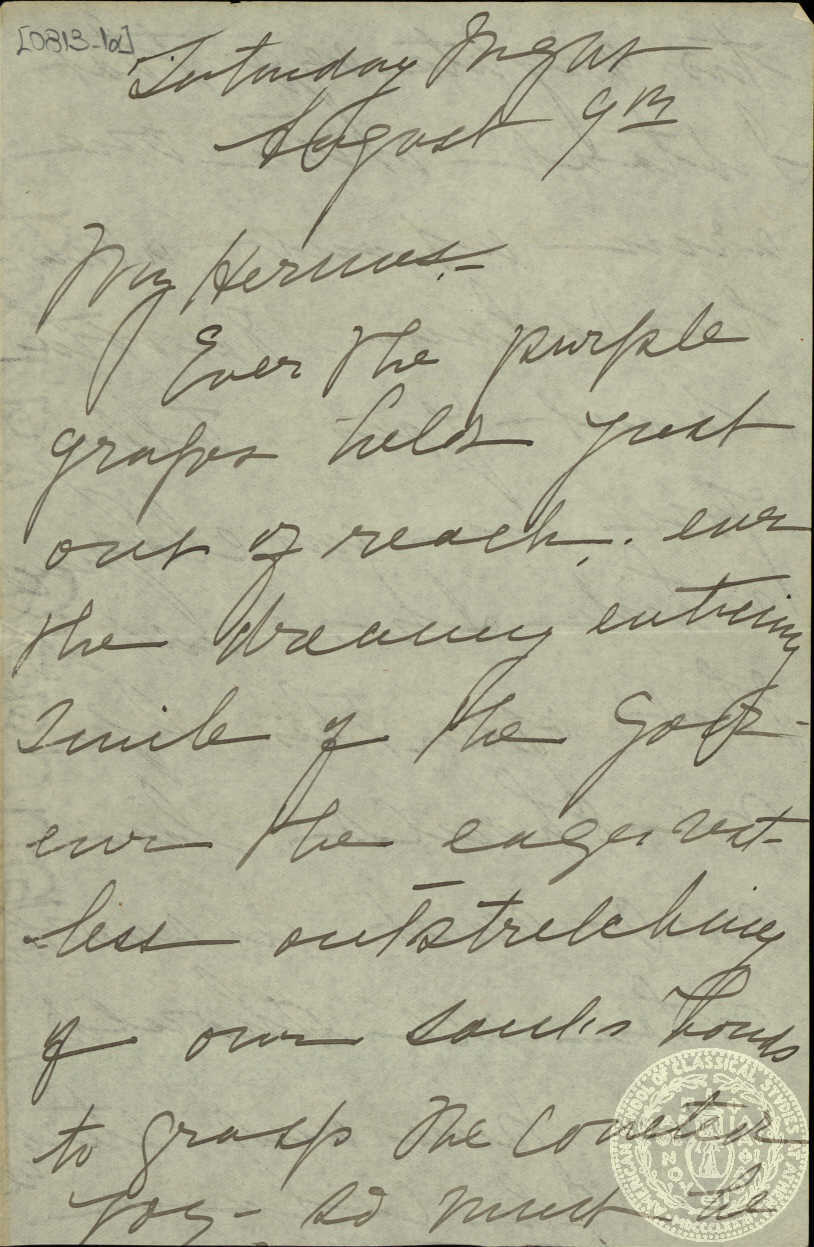 [0813-1a]
Saturday Night
August 9th
My Hermes.-
Ever the purple
grapes held just
out of reach. . ever
the dreamy enticing
smile of the God-
ever the eager rest-
-less outstretching
of our soul's hands
to grasp the
joy - so must be
AMERICAN SCHOOL OF CLASSICAL STUDIES AT ATHENS